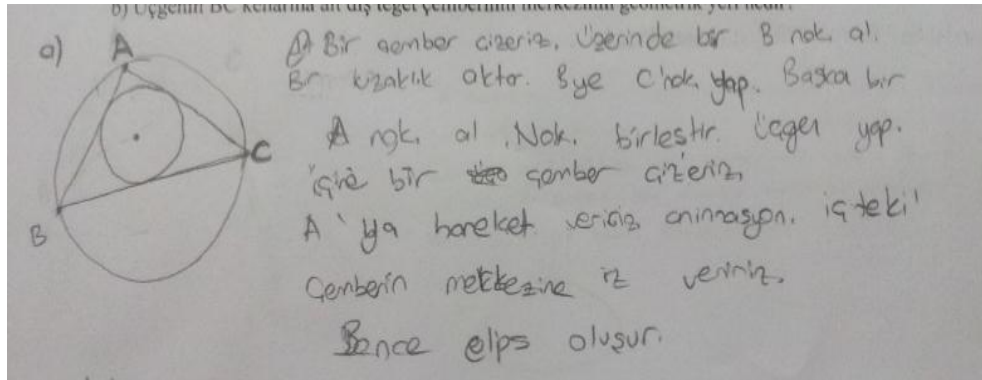 b) Üçgenin BC kenarına ait dış teğet çemberinin merkezinin geometrik yeri nedir?
a) A Bir çember çizeriz. Üzerinde bir B nok. al.
Bir uzaklık aktar. B ye C nok. yap. Başka bir
A nok. al. Nok. birleştir. Üçgen yap.
içine bir çember çizeriz.
A'ya hareket veririz animasyon. içteki
Çemberin merkezine iz veririz.
Bence elips oluşur.
A
B
C